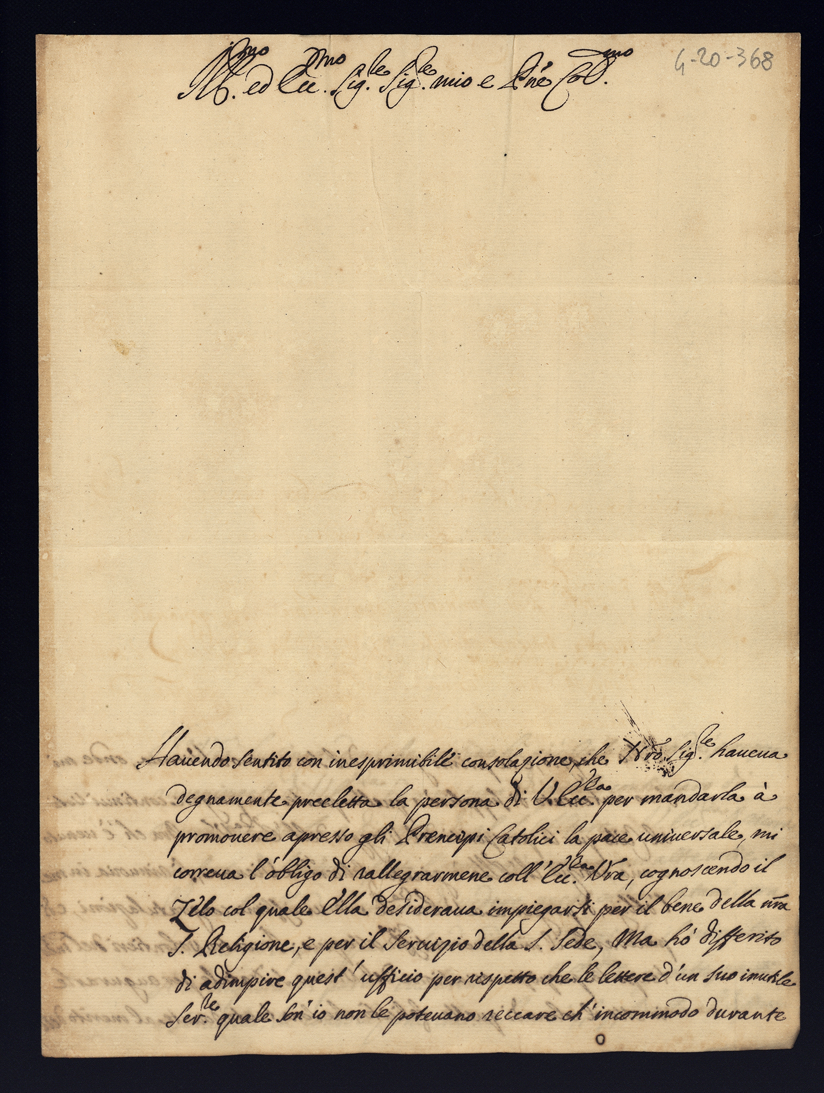 Ill.mo ed Ecc.mo Sig.re Sig.re mio e Pne Col.mo
4-20-368
Hauendo sentito con inesprimibile consolazione, che Nrõ Sig.re haueua
degnamente preeletta la persona di V. Ecc.za per mandarla à
promouere apresso gli Prencipi Catolici la pace uniuersale, mi
correua l'óbligo di rallegrarmene coll'Ecc.za Vra, cognoscendo il
Zélo col quale Ella desideraua impiegarsi per il bene della nrã
S. Religione, e per il Seruizio della S. Sede, Ma hó differito
di adimpire quest'ufficio per rispetto che le lettere d'un suo inutile
Ser.re quale son' io non le poteuano reccare ch'incommodo durante